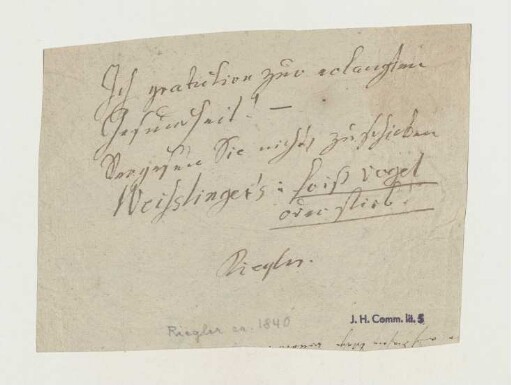 Ich gratulire zur erlangten
Gesundheit! —
Vergessen Sie nicht zu schicken
Weißlinger's: friß Vogel
oder stirb!
Riegler.
Riegler ca. 1840
J. H. Comm. lä. 5